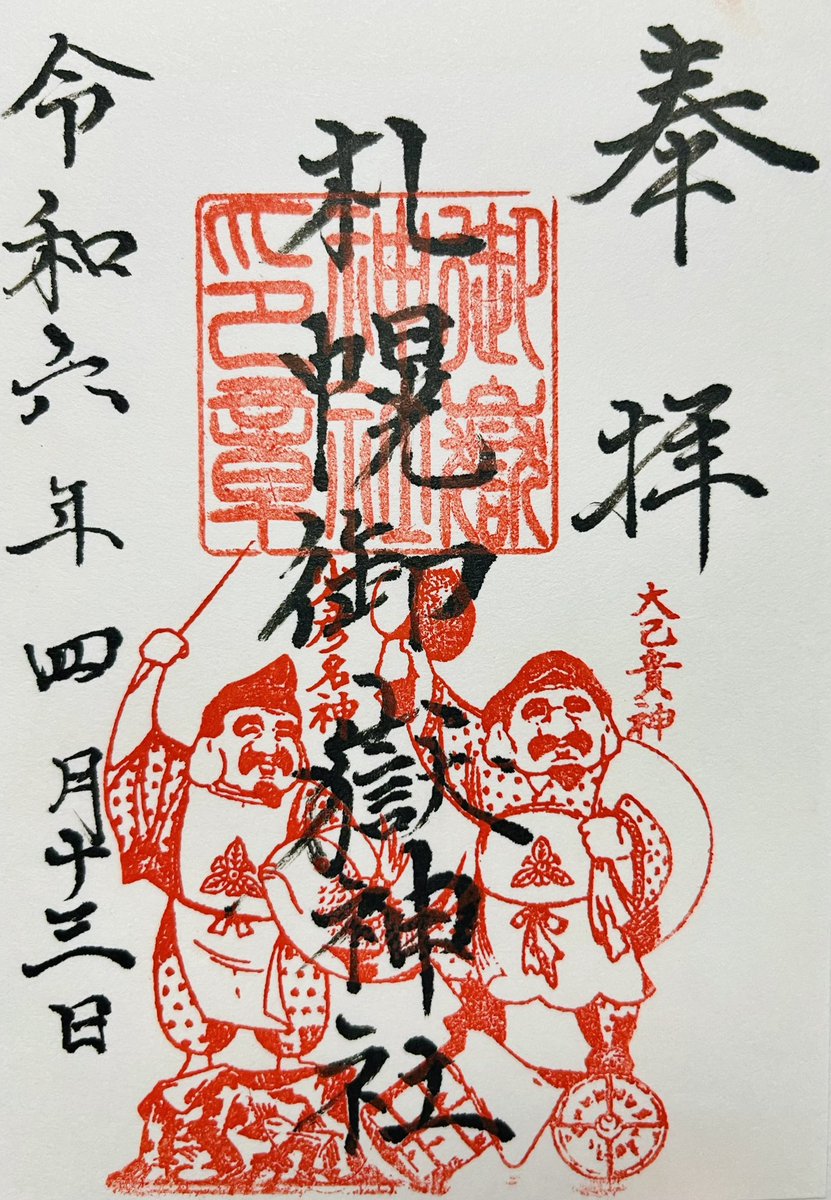 奉拝
大己貴神
札幌御嶽神社
御嶽
神社
印章
少彦名神
令和六年四月十三日